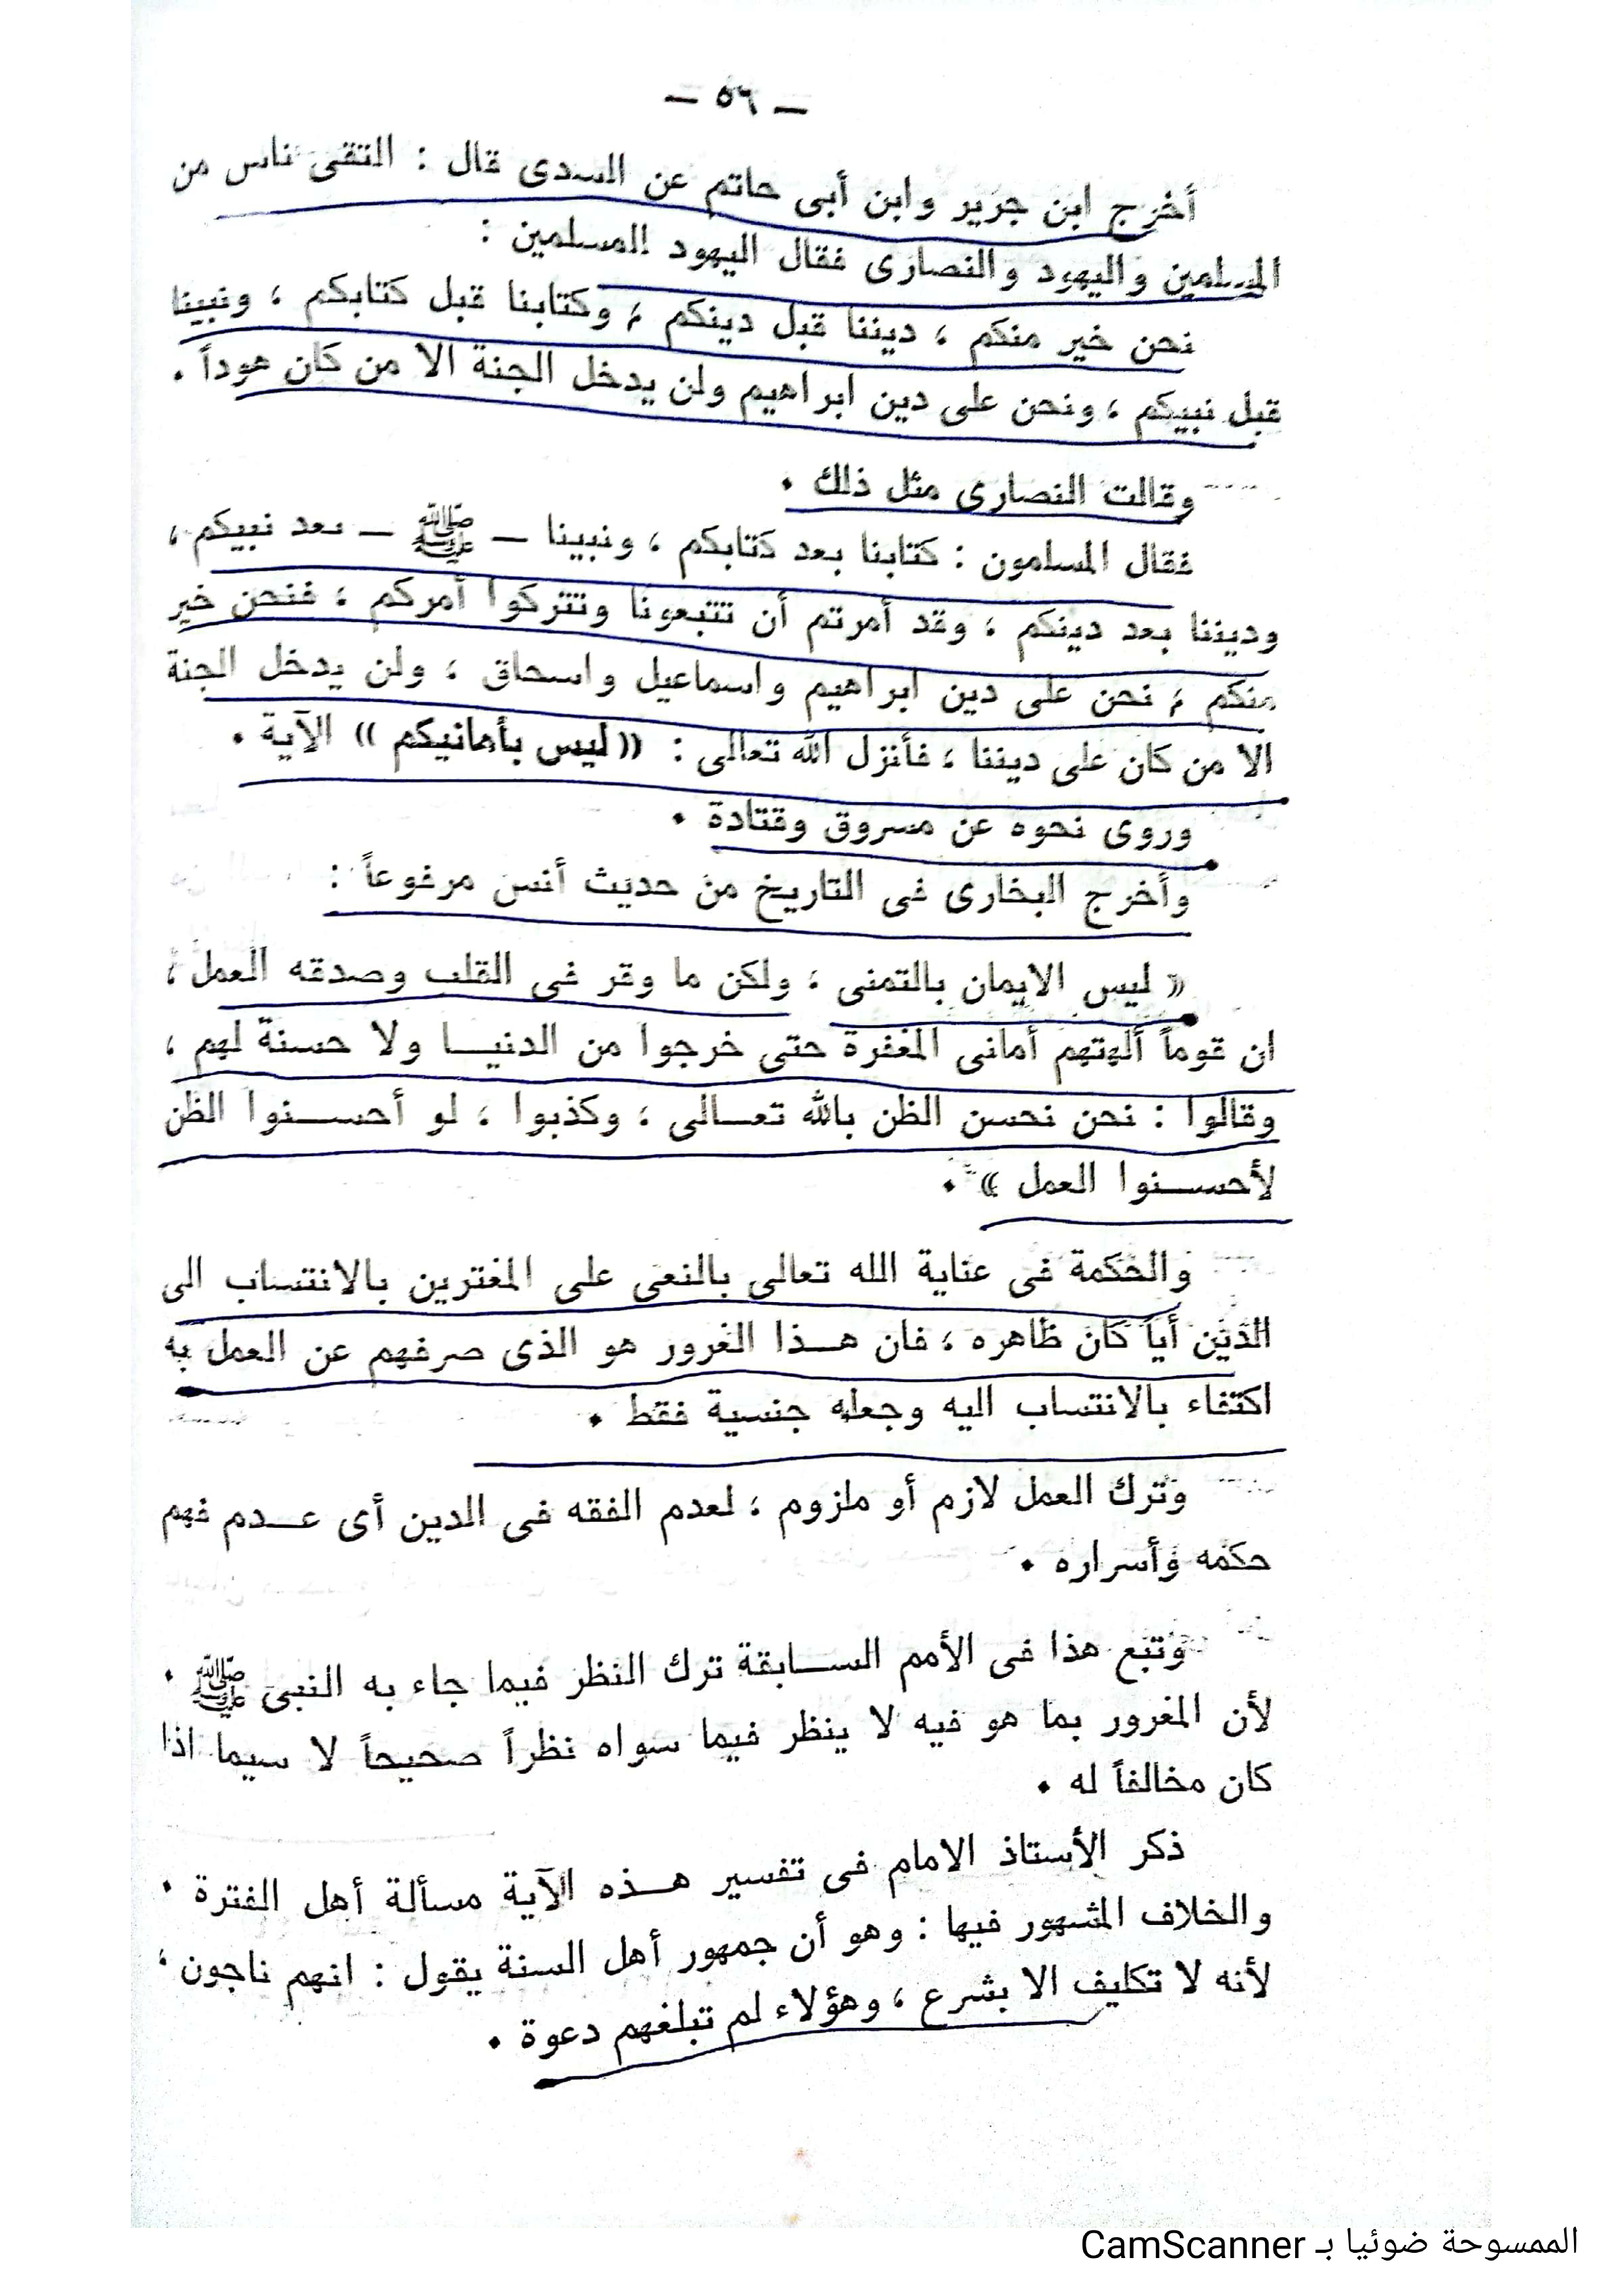 — ٥٦ —
أخرج ابن جرير وابن أبى حاتم عن السدى قال : التقى ناس من
المسلمين واليهود والنصارى فقال اليهود للمسلمين :
نحن خير منكم ، ديننا قبل دينكم ، وكتابنا قبل كتابكم ، ونبينا
قبل نبيكم ، ونحن على دين ابراهيم ولن يدخل الجنة الا من كان هوداً .
وقالت النصارى مثل ذلك .
فقال المسلمون : كتابنا بعد كتابكم ، ونبينا — ﷺ — بعد نبيكم ،
وديننا بعد دينكم ، وقد أمرتم أن تتبعونا وتتركوا أمركم ، فنحن خير
منكم ، نحن على دين ابراهيم واسماعيل واسحاق ، ولن يدخل الجنة
الا من كان على ديننا ، فأنزل الله تعالى : « ليس بأمانيكم » الآية .
وروى نحوه عن مسروق وقتادة .
وأخرج البخارى فى التاريخ من حديث أنس مرفوعاً :
« ليس الايمان بالتمنى ، ولكن ما وقر فى القلب وصدقه العمل ،
ان قوماً ألهتهم أمانى المغفرة حتى خرجوا من الدنيا ولا حسنة لهم ،
وقالوا : نحن نحسن الظن بالله تعالى ، وكذبوا ، لو أحسنوا الظن
لأحسنوا العمل » .
والحكمة فى عناية الله تعالى بالنعى على المغترين بالانتساب الى
الدين أياً كان ظاهره ، فان هذا الغرور هو الذى صرفهم عن العمل به
اكتفاء بالانتساب اليه وجعله جنسية فقط .
وترك العمل لازم أو ملزوم ، لعدم الفقه فى الدين أى عدم فهم
حكمه وأسراره .
وتبع هذا فى الأمم السابقة ترك النظر فيما جاء به النبى ﷺ .
لأن المغرور بما هو فيه لا ينظر فيما سواه نظراً صحيحاً لا سيما اذا
كان مخالفاً له .
ذكر الأستاذ الامام فى تفسير هذه الآية مسألة أهل الفترة .
والخلاف المشهور فيها : وهو أن جمهور أهل السنة يقول : انهم ناجون ،
لأنه لا تكليف الا بشرع ، وهؤلاء لم تبلغهم دعوة .
الممسوحة ضوئيا بـ CamScanner